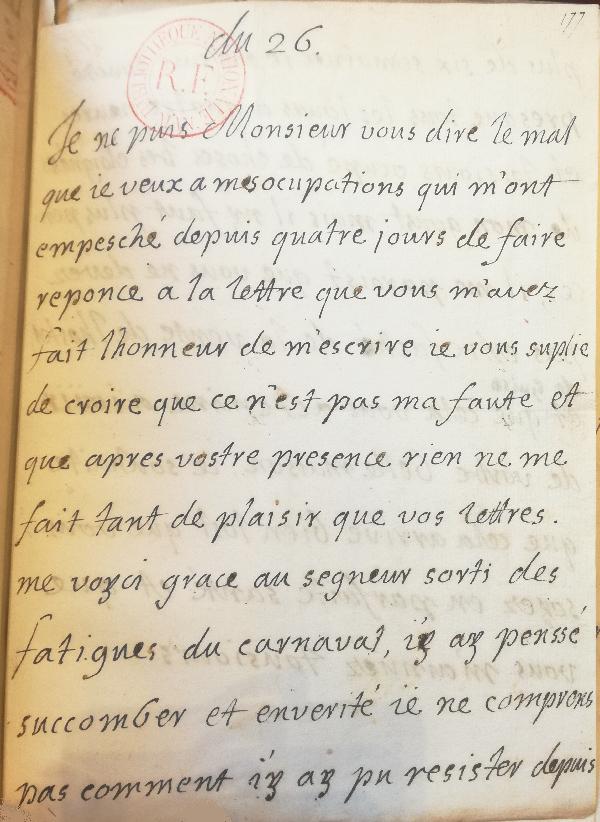 177
du 26.
BIBLIOTHEQUE NATIONALE
R.F.
Je ne puis Monsieur vous dire le mal
que ie veux a mesocupations qui m'ont
empesché depuis quatre jours de faire
reponce a la lettre que vous m'avez
fait lhonneur de m'escrire ie vous suplie
de croire que ce n'est pas ma faute et
que apres vostre presence rien ne me
fait tant de plaisir que vos lettres.
me voyci grace au segneur sorti des
fatigues du carnaval, iy ay penssé
succomber et enverité ie ne comprens
pas comment iy ay pu resister depuis